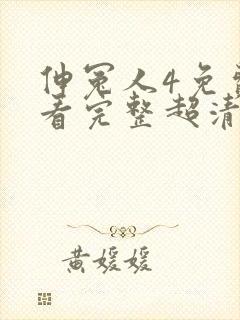 伸冤人4免费
看完整超清
黄媛媛